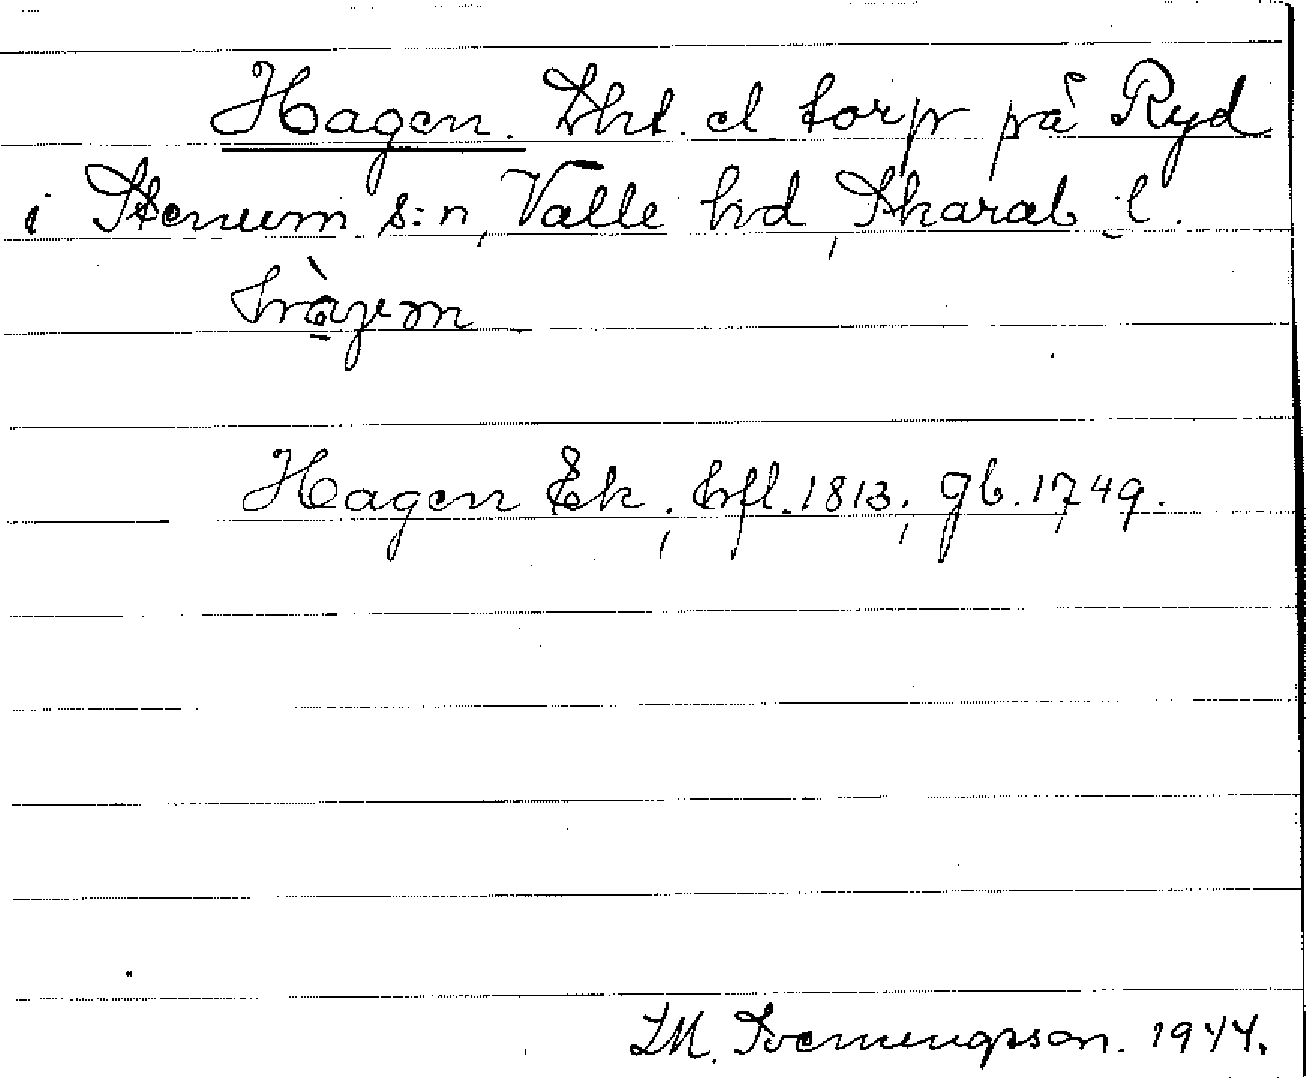 Hagen. Lht. el torp på Ryd
i Stenum s:n, Valle hd, Skarab. l.
hàgen
Hagen Ek, hfl. 1813; gb. 1749.
LM. Svenungsson. 1944.